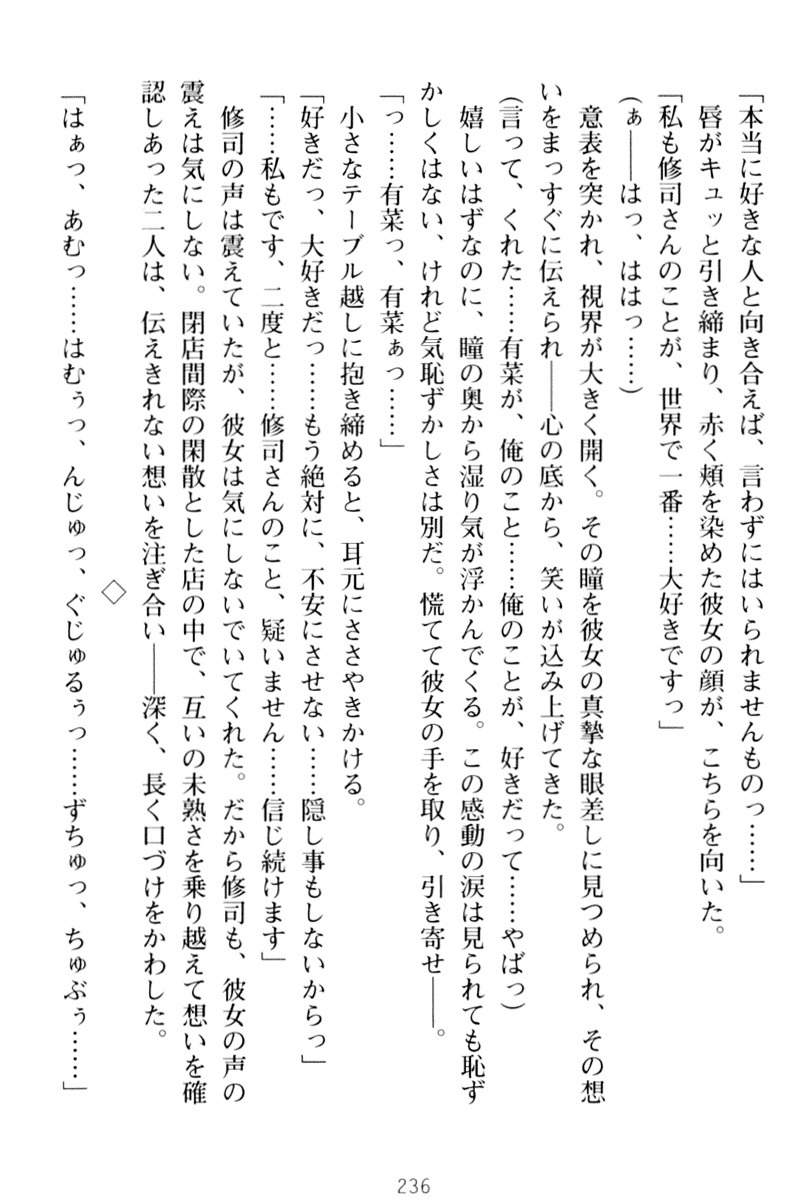 「本当に好きな人と向き合えば、言わずにはいられませんものっ……」
唇がキュッと引き締まり、赤く頬を染めた彼女の顔が、こちらを向いた。
「私も修司さんのことが、世界で一番……大好きですっ」
(ぁ――はっ、ははっ……)
意表を突かれ、視界が大きく開く。その瞳を彼女の真摯な眼差しに見つめられ、その想
いをまっすぐに伝えられ――心の底から、笑いが込み上げてきた。
(言って、くれた……有菜が、俺のこと……俺のことが、好きだって……やばっ)
嬉しいはずなのに、瞳の奥から湿り気が浮かんでくる。この感動の涙は見られても恥ず
かしくはない、けれど気恥ずかしさは別だ。慌てて彼女の手を取り、引き寄せ――。
「っ……有菜っ、有菜ぁっ……」
小さなテーブル越しに抱き締めると、耳元にささやきかける。
「好きだっ、大好きだっ……もう絶対に、不安にさせない……隠し事もしないからっ」
「……私もです、二度と……修司さんのこと、疑いません……信じ続けます」
修司の声は震えていたが、彼女は気にしないでいてくれた。だから修司も、彼女の声の
震えは気にしない。閉店間際の閑散とした店の中で、互いの未熟さを乗り越えて想いを確
認しあった二人は、伝えきれない想いを注ぎ合い――深く、長く口づけをかわした。
◇
「はぁっ、あむっ……はむぅっ、んじゅっ、ぐじゅるぅっ……ずちゅっ、ちゅぶぅ……」
236